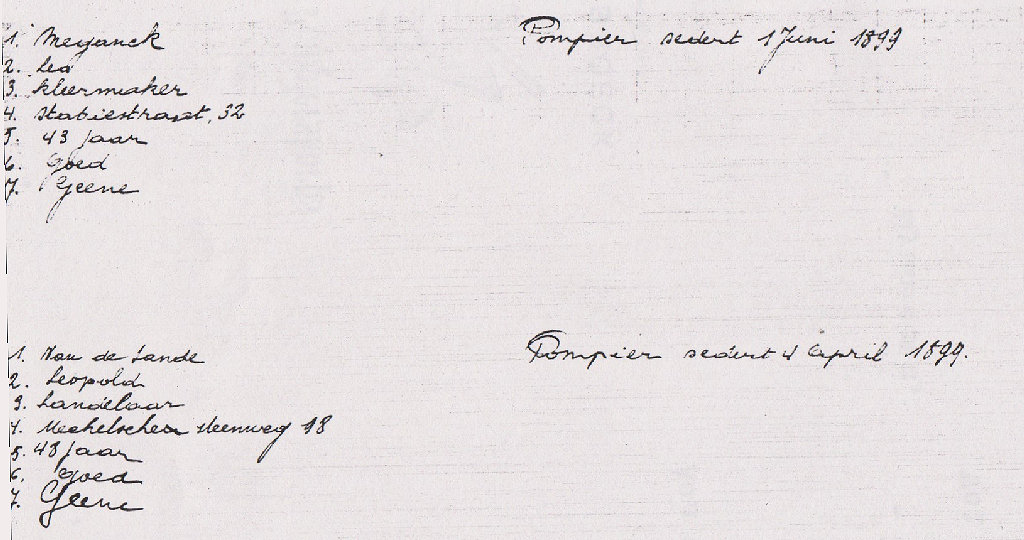 1. Meganck
Pompier sedert 1 Juni 1899
2. Leo
3. kleermaker
4. statiestraat, 32
5. 43 jaar
6. goed
7. Geene
1. Van de Sande
Pompier sedert 4 April 1899.
2. Leopold
3.
4. Mechelschen steenweg 18
5. 48 jaar
6. goed
7. Geene